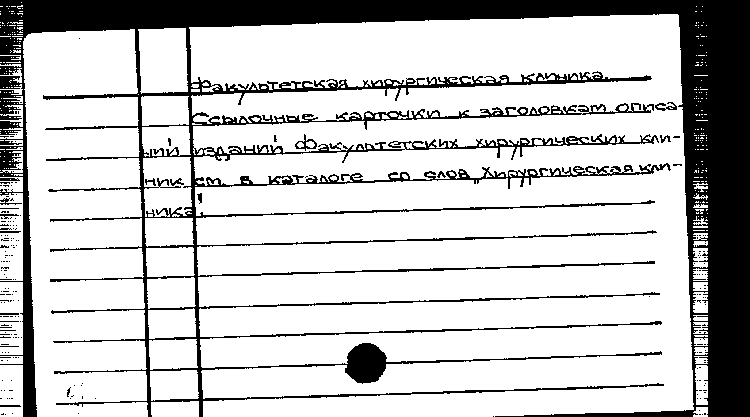 Факультетская хирургическая клиника.
Ссылочные карточки к заголовкам описа-
ний изданий Факультетских хирургических кли-
ник см. в каталоге со слов „Хирургическая кли-
ника".